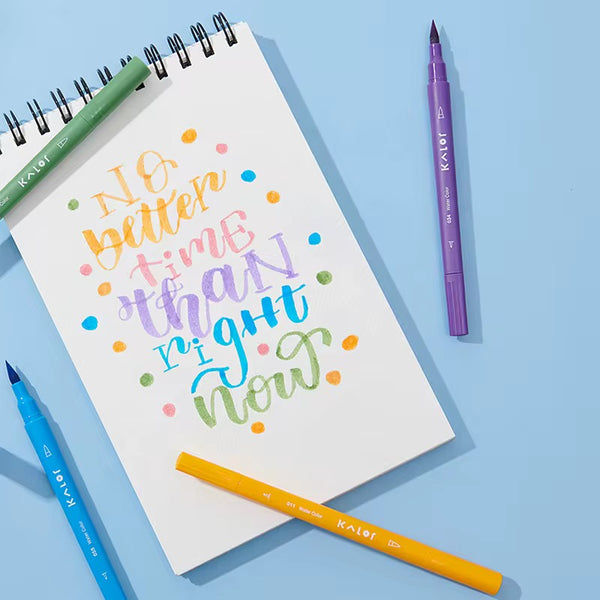 No
better
time
than
right
now
KALOR
034 Water Color
KALOR
Water Color
011 Water Color
KALOR